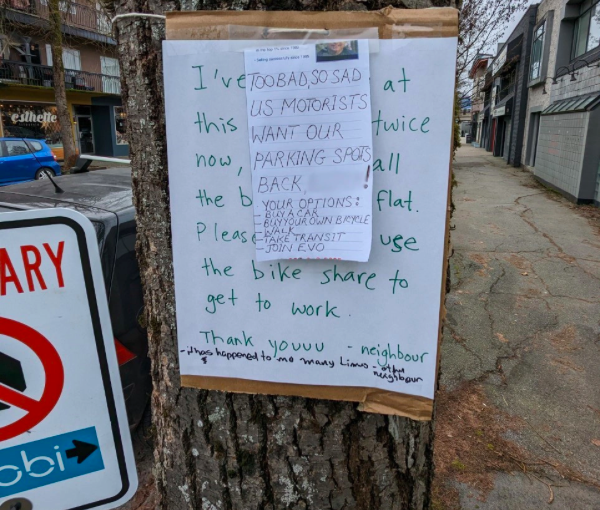 esthette
ARY
obi
I've at
this twice
now, all
the b flat.
Please use
the bike share to
get to work.
Thank youuu - neighbour
TOO BAD, SO SAD
US MOTORISTS
WANT OUR
PARKING SPOTS
BACK, !
YOUR OPTIONS:
- BUY A CAR
- BUY YOUR OWN BICYCLE
- WALK
- TAKE TRANSIT
- JOIN EVO
has happened to me many times - other
neighbour